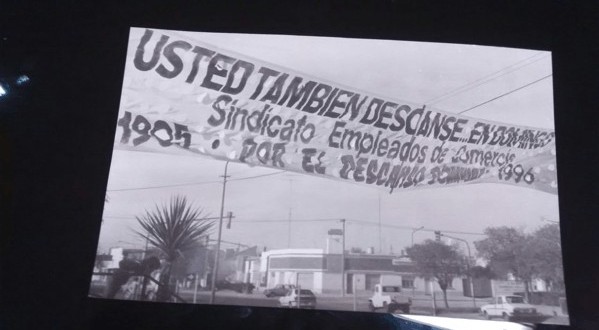 USTED TAMBIEN DESCANSE... EN DOMINGO
Sindicato Empleados de Comercio
1905 · POR EL DESCANSO DOMINICAL 1996